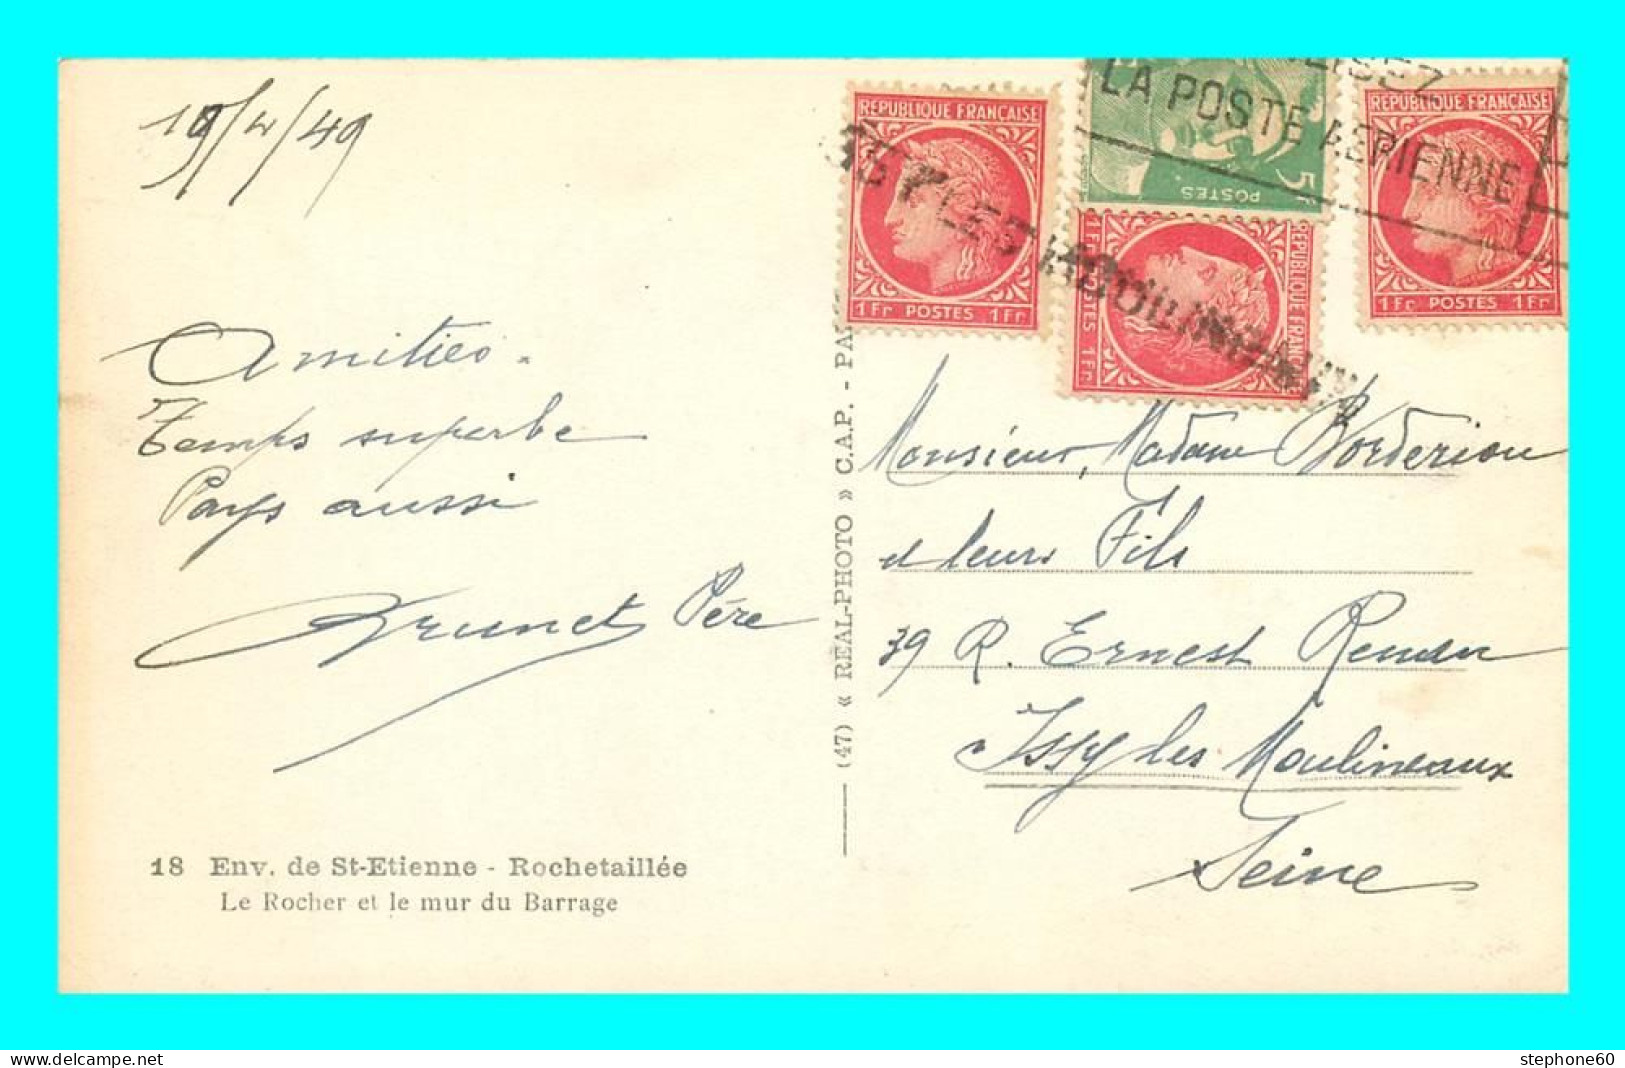 19/4/49
Amitiés.
Temps superbe
Pays aussi
Brunet Père
18 Env. de St-Etienne - Rochetaillée
Le Rocher et le mur du Barrage
(47) « REAL-PHOTO » C.A.P. -
REPUBLIQUE FRANÇAISE
1Fr POSTES 1Fr
5F POSTES
REPUBLIQUE FRANC
POSTES 1Fr
REPUBLIQUE FRANÇAISE
1Fr POSTES 1Fr
LA POSTE AERIENNE
LES MOULINEAUX
Monsieur, Madame Borderiou
et leurs Fils
39 R. Ernest Renan
Issy les Moulineaux
Seine
www.delcampe.net
stephone60